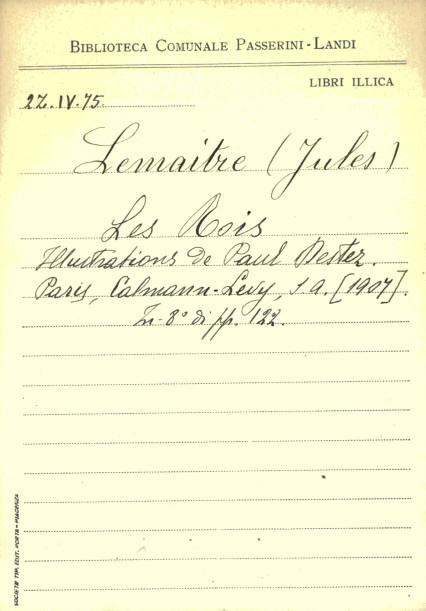 BIBLIOTECA COMUNALE PASSERINI-LANDI
LIBRI ILLICA
2Z.IV.75.
Lemaitre (Jules)
Les Rois
Illustrations de Paul Destez.
Paris, Calmann-Levy, s.a. [1907].
In-8° di pp. 122.
SOCIETÀ TIP. EDIT. PORTA - PIACENZA